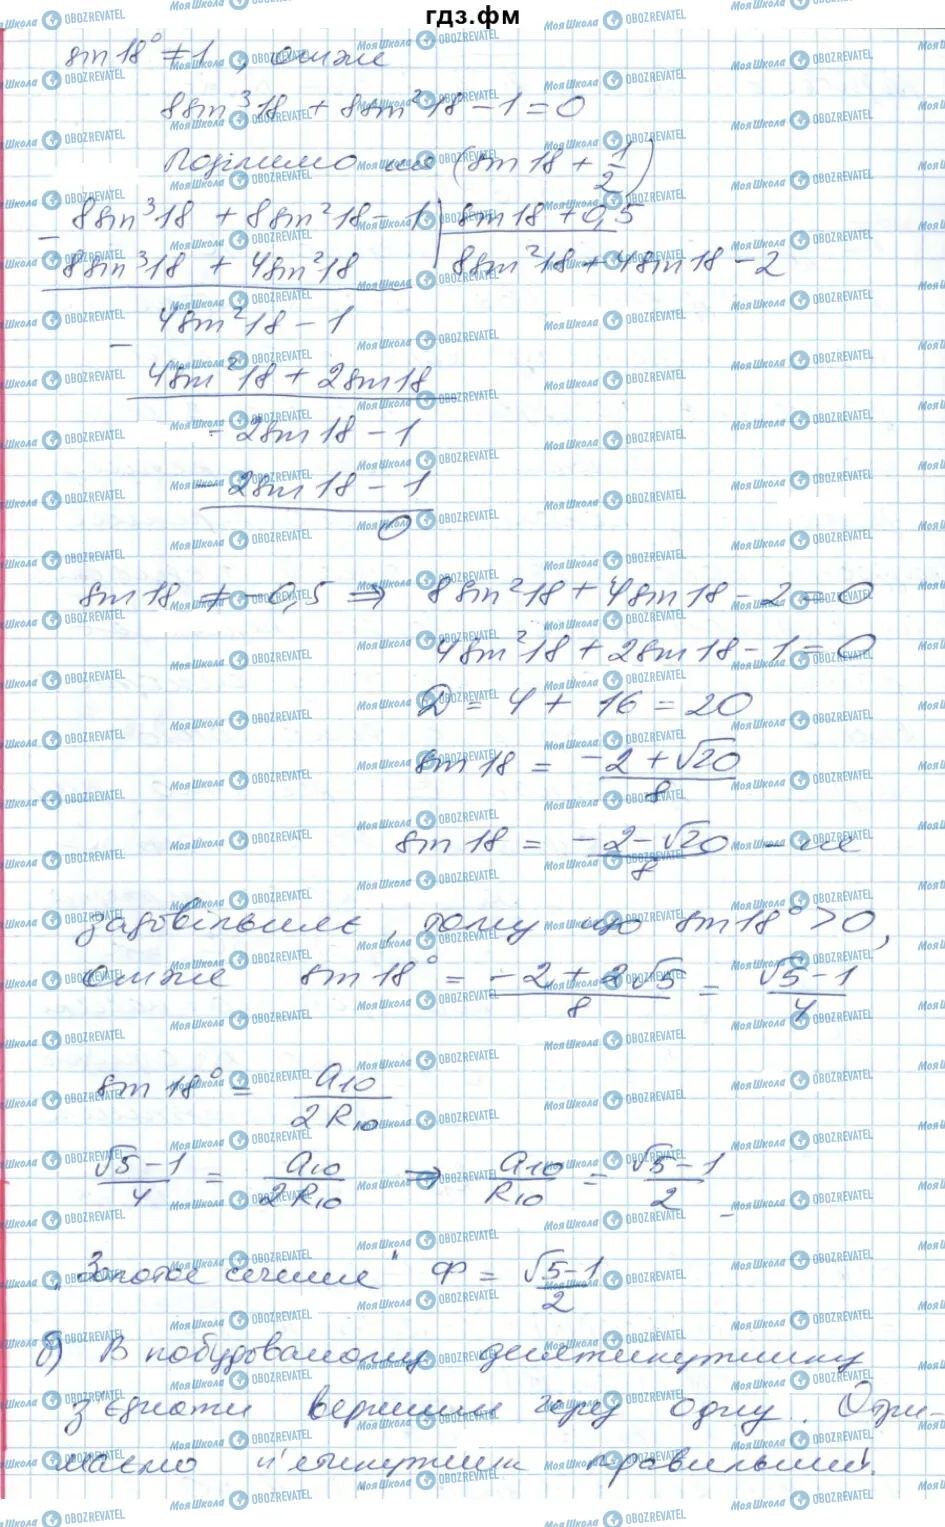 гдз.фм
sin 18° ≠ 1, отже
8sin³18 + 8sin²18 - 1 = 0
Поділимо на (sin 18 + 1/2)
8sin³18 + 8sin²18 - 1 | sin 18 + 0,5
8sin³18 + 4sin²18 | 8sin²18 + 4sin18 - 2
4sin²18 - 1
4sin²18 + 2sin18
- 2sin18 - 1
- 2sin18 - 1
0
sin 18 ≠ -0,5 ⇒ 8sin²18 + 4sin18 - 2 = 0
4sin²18 + 2sin18 - 1 = 0
D = 4 + 16 = 20
sin 18 = (-2 + √20)/8
sin 18 = (-2 - √20)/8 - не
задовільняє, тому що sin 18° > 0,
Отже sin 18° = (-2 + 2√5)/8 = (√5 - 1)/4
sin 18° = a₁₀/2R₁₀
(√5 - 1)/4 = a₁₀/2R₁₀ ⇒ a₁₀/R₁₀ = (√5 - 1)/2
„Золотое сечение“ Ф = (√5 - 1)/2
б) В побудованому десятикутнику
з'єднати вершини через одну. Отри-
маємо п'ятикутник правильний.
МояШкола OBOZREVATEL